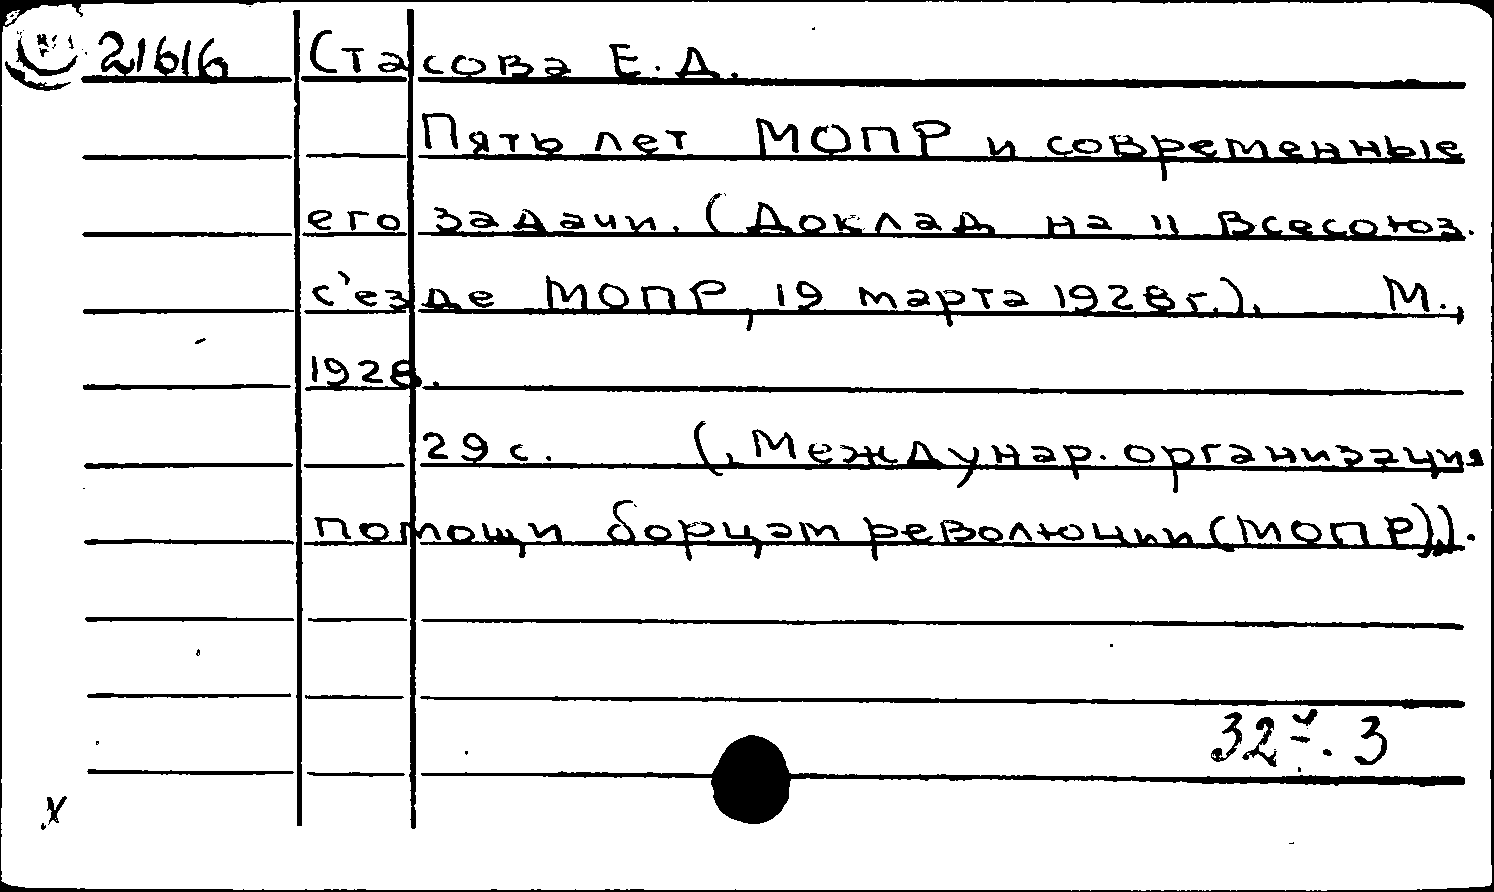 21616 Стасова Е. Д.
Пять лет МОПР и современные
его задачи. (Доклад на II Всесоюз.
с'езде МОПР, 19 марта 1928 г.). М.,
1928.
29 с. (, Междунар. организация
помощи борцам революции (МОПР)).
327.3
x